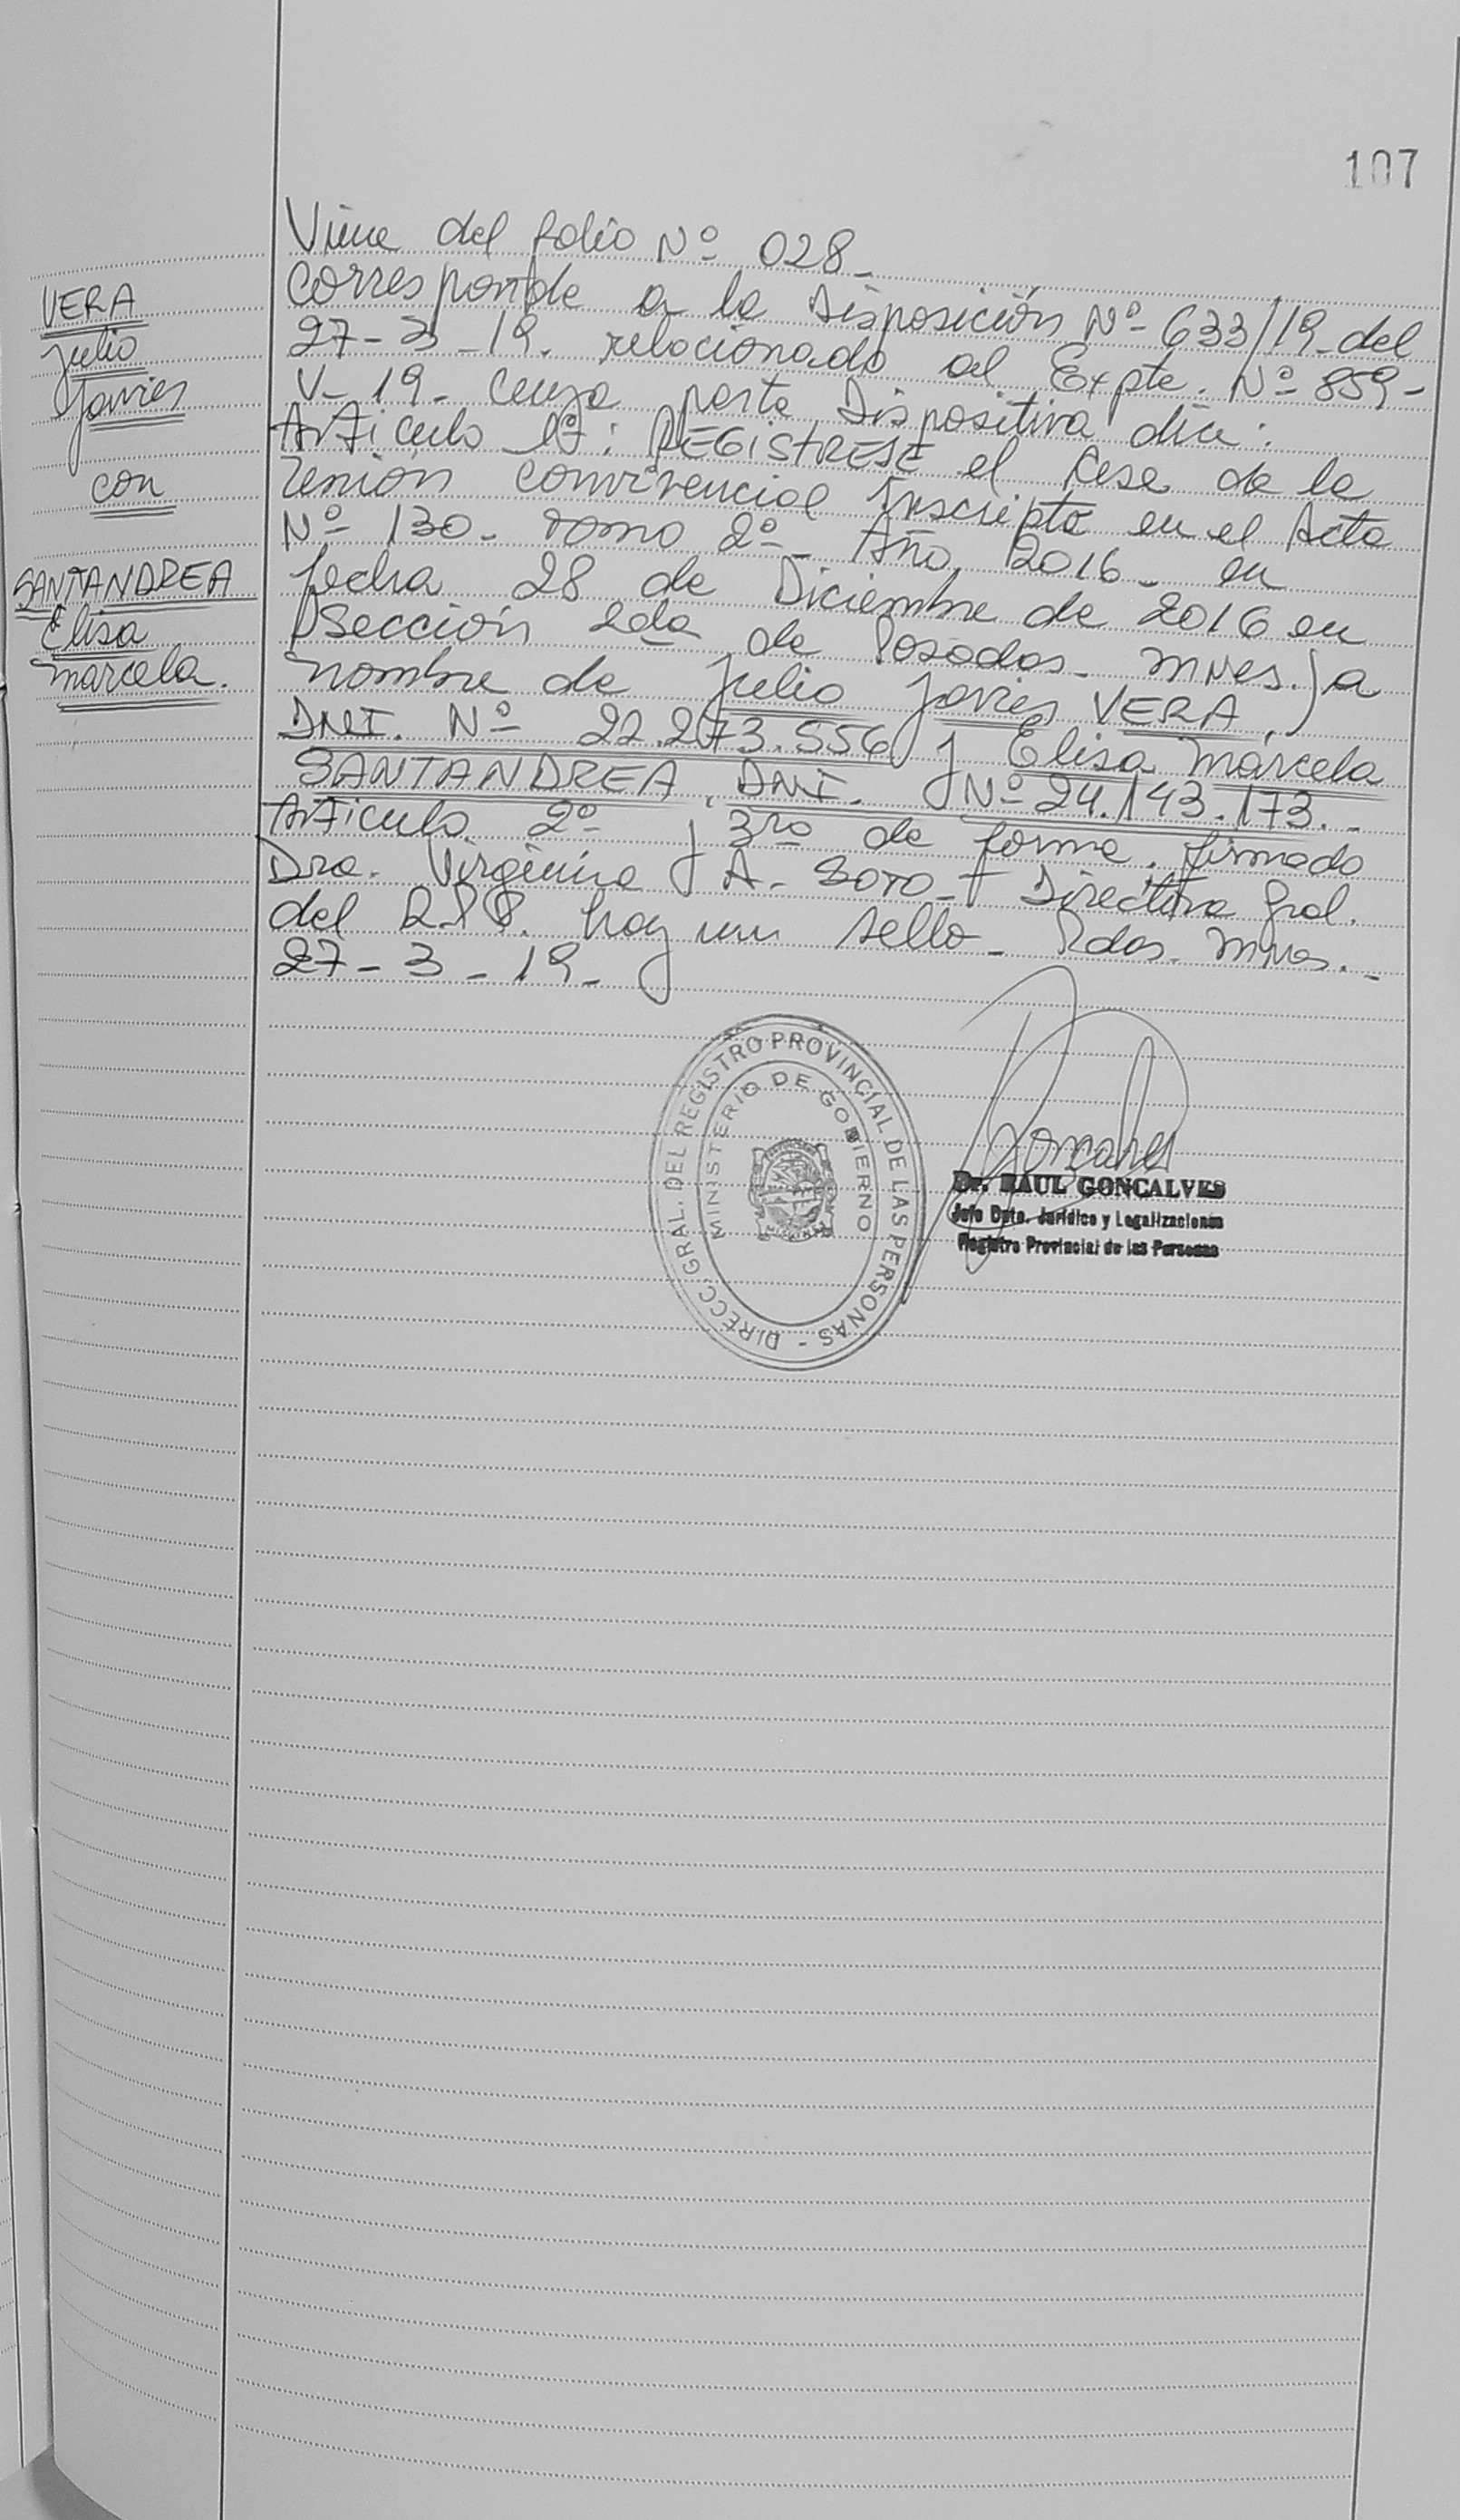 107
VERA
Julio
Javier
con
SANTANDREA
Elisa
Marcela.
Viene del folio Nº 028-
Corresponde a la Disposición Nº 633/19-del
27-3-19. relacionado al Expte. Nº 859-
V-19- cuya parte Dispositiva dice:
Artículo 1º: REGISTRESE el Cese de la
Unión convivencial Inscripta en el Acta
Nº 130- Tomo 2º- Año 2016- en
fecha 28 de Diciembre de 2016 en
Sección 2da de Posadas- Mnes. a
nombre de Julio Javier VERA,
DNI. Nº 22.273.556 y Elisa Marcela
SANTANDREA, DNI. Nº 24.143.173.-
Artículo 2º y 3ro de forma. firmado
Dra. Virginia A. SOTO- Directora Gral.
del R.P.P. hay un sello- Pdas. Mnes.-
27-3-19-
DIRECC. GRAL. DEL REGISTRO PROVINCIAL DE LAS PERSONAS -
MINISTERIO DE GOBIERNO
MISIONES
Dr. RAUL GONCALVES
Jefe Dpto. Jurídico y Legalizaciones
Registro Provincial de las Personas